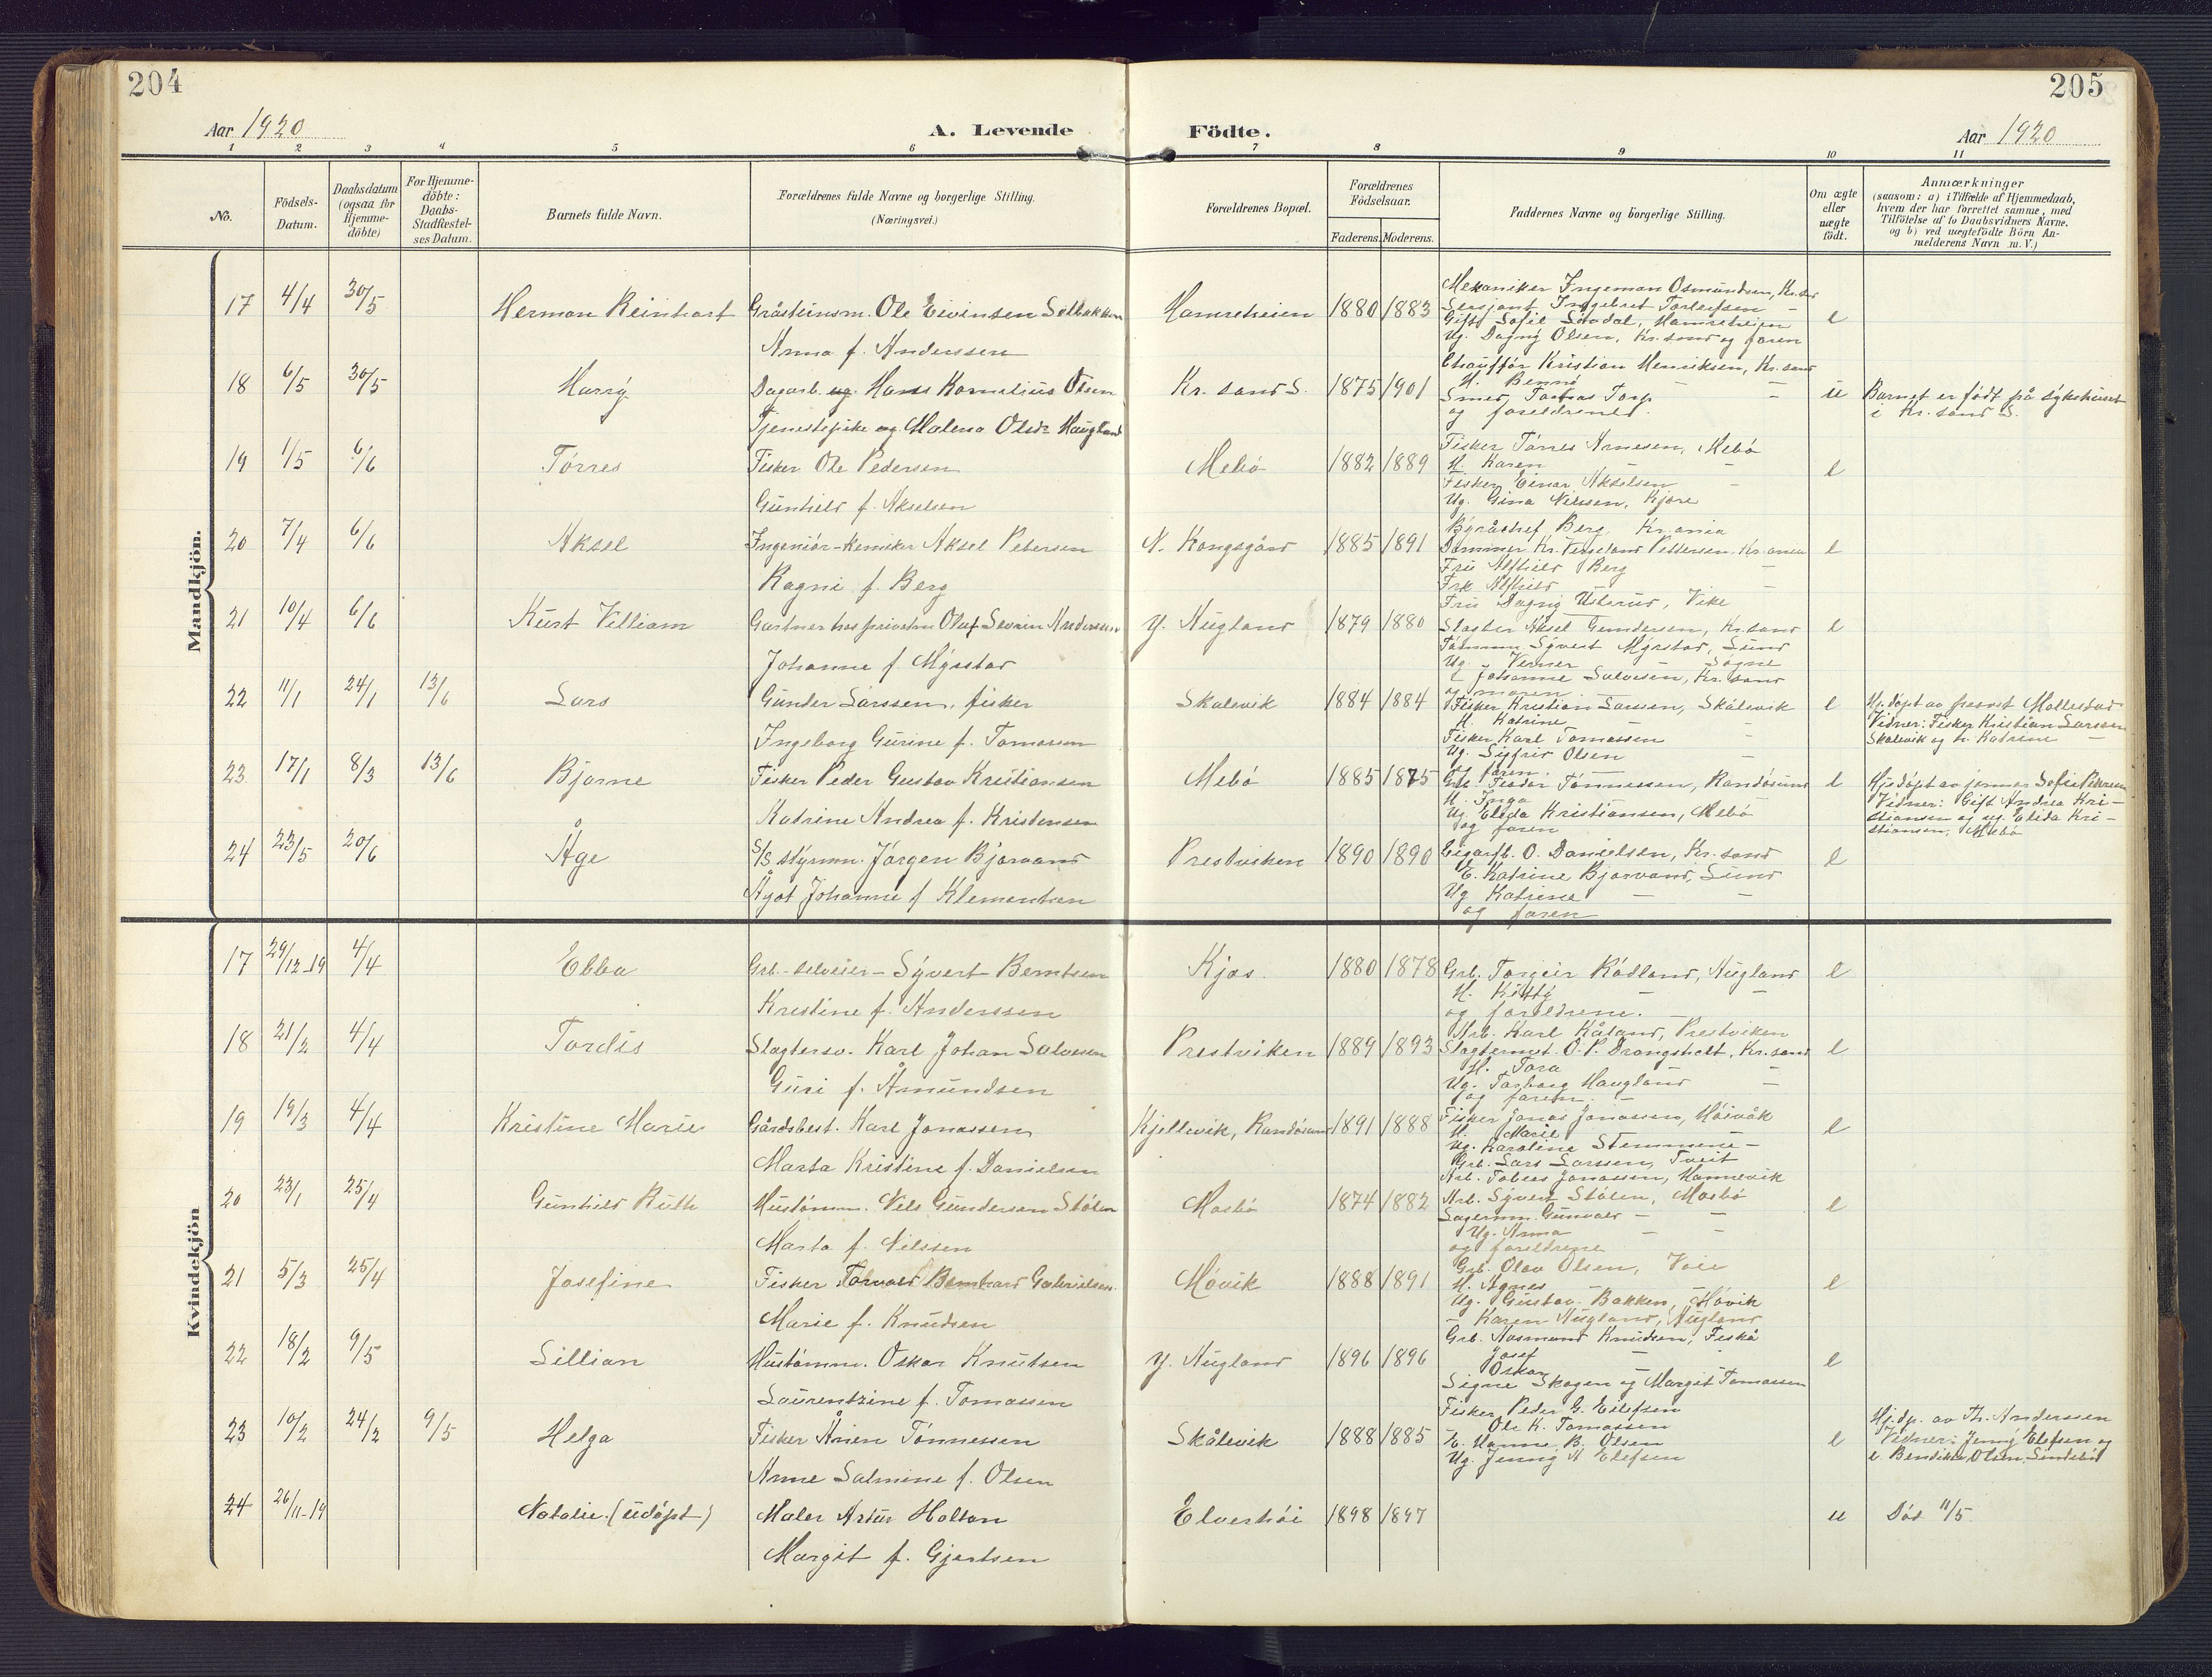 204
205
Aar 1920
A. Levende Födte.
Aar 1920
1 2 3 4 5 6 7 8 9 10 11
No.
Födsels-
Datum.
Daabsdatum
(ogsaa for
Hjemme-
döbte)
For Hjemme-
döbte:
Daabs-
Stadfæstel-
ses Datum.
Barnets fulde Navn.
Forældrenes fulde Navne og borgerlige Stilling.
(Næringsvei.)
Forældrenes Bopæl.
Forældrenes
Födselsaar.
Faderens. Moderens.
Faddernes Navne og borgerlige Stilling.
Om ægte
eller
uægte
födt.
Anmærkninger
(saasom: a) i Tilfælde af Hjemmedaab,
hvem der har forrettet samme, med
Tilföielse af to Daabsvidners Navne.
og b) ved uægtefödte Börn An-
melderens Navn m. V.)
Mandkjön.
17 4/4 30/5 Herman Reinhart Gråsteinsm. Ole Eivinsen Selbekken
Anna f. Anderssen
Hamreheien 1880 1883
Mekaniker Ingeman Osmundsen, Kr.sand
Sersjant Ingebret Torleifsen -
Gift Sofie Lindal, Hamreheien
Ug. Dagny Olsen, Kr. sand og faren
e
18 6/5 30/5 Harry Dagarb. ug. Hans Kornelius Olsen
Tjenestepike ug. Malena Olsdr Haugland
Kr. sand S. 1875 1901
Chauffør Kristian Henriksen, Kr. sand
H. Benné - -
Smed Tobias Torp -
og foreldrenes.
u
Barnet er født på sykehuset
i Kr. sand S.
19 1/5 6/6 Tørres Fisker Ole Pedersen
Gunhild f. Akselsen
Mebø 1882 1889
Fisker Tørres Arnesen, Mebø
H. Karen -
Fisker Einar Akselsen -
Ug. Gina Nilssen, Kjøre
e
20 7/4 6/6 Aksel Ingeniør-kemiker Aksel Petersen
Ragni f. Berg
N. Kongsgård 1885 1891
Byråchef Berg, Kr.ania
Kr. Vigeland Pettersen, Kr.ania
Fru Alfhild Berg -
Frk Alfhild -
e
21 10/4 6/6 Kurt Villiam Gartner hos privatm Oluf Severin Andersen
Johanne f. Myrstad
Y. Augland 1879 1880
Fru Dagny Usterud, Vike
Slagter Aksel Gundersen, Kr.sand
Tømmerm Syvert Myrstad, Sund
Ug. Verner - Søgne
" Johanne Salvesen, Kr. sand
og moren
e
22 11/1 24/1 13/6 Lars Gunder Larssen, fisker
Ingeborg Gurine f. Tomassen
Skålevik 1884 1884
Fisker Kristian Larssen, Skålevik
H. Katrine -
Fisker Karl Tomassen -
Ug. Sigfrid Olsen
og faren -
e
Hj. døpt av provst Mallestad
Vidner: Fisker Kristian Larssen
Skålevik og h. Katrine -
23 17/1 8/3 13/6 Bjarne Fisker Peder Gustav Kristiansen
Katrine Andrea f. Kristensen
Mebø 1885 1875
Grb. Fredor Tønnessen, Randøsund
H. Inga
Ug. Elida Kristiansen, Mebø
og faren
e
Hjdøpt av jormor Sofie Pedersen
Vidner: Gift Andrea Kri-
stiansen og ug. Elida Kri-
stiansen, Mebø
24 23/5 20/6 Åge S/S styrmn. Jørgen Bjorvand
Ågot Johanne f Klementsen
Prestviken 1890 1890
Eigarfb. O. Danielsen, Kr. sand
E. Katrine Bjorvand, Sund
Ug Katrine - -
og faren
e
Kvindekjön
17 29/12-19 4/4 Ebba Grb.-selveier- Syvert Berntsen
Kristine f. Anderssen
Kjos. 1880 1878
Grb. Torgeir Rådland, Augland
H. Kitty - -
og foreldrene.
e
18 21/2 4/4 Tordis Slagtersv. Karl Johan Salvesen
Guri f. Åmundsen
Prestviken 1889 1893
Arb. Karl Kåland, Prestviken
Slagtermst. O. P. Drangsholt, Kr.sand
H. Tora -
Ug. Torborg Haugland -
og faren. -
e
19 19/3 4/4 Kristine Marie Gårdsbest. Karl Jonassen
Marta Kristine f. Danielsen
Kjellevik, Randøsund 1891 1888
Fisker Jonas Jonassen, Høivåk
H. Marie
Ug. Karoline Stemmene -
Grb. Lars Larssen, Tveit
Arb. Tobias Jonassen, Hannevik
e
20 23/1 25/4 Gunhild Ruth Hustømm. Nils Gundersen Stølen
Marta f. Nilssen
Mosbø 1874 1882
Arb. Syvert Stølen, Mosbø
Lagermn. Gunvald - -
Ug. Anna - -
og foreldrene
e
21 5/3 25/4 Josefine Fisker Torvald Bernhard Gabrielsen.
Marie f. Knudsen
Møvik 1888 1891
Grb. Olav Olsen, Voie
H. Agnes - -
Ug. Gustav Bakken, Møvik
- Karen Augland, Augland
e
22 18/2 9/5 Lillian Hustømm. Oskar Knutsen
Laurentzine f. Tomassen
Y. Augland 1896 1896
Grb. Aasmund Knudsen, Fiskå
Josef -
Oskar -
Signe Skogen og Margit Tomassen
e
23 10/2 24/2 9/5 Helga Fisker Ånen Tønnessen
Anne Salmine f. Olsen
Skålevik 1888 1885
Fisker Peder G. Eilefsen
- Ole K. Tomassen
E. Hanne B. Olsen
Ug. Jenny A Elefsen
e
Hj.dp. av Th. Anderssen
Vidner: Jenny Elefsen og
e. Bendikte Olsen,
24 26/11-19 Natalie. (udøpt) Maler Artur Holtan
Margit f. Gjertsen
Elvestiøi 1898 1897
u
Død 11/5